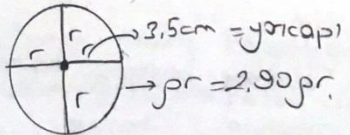 r
r r → 3,5cm = yarıçapı
r → pr = 2.90pr.